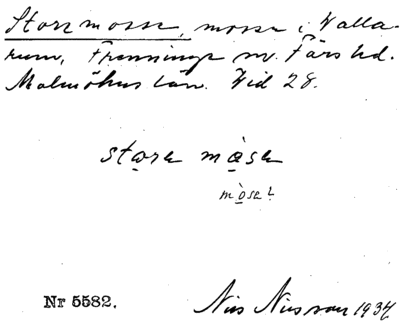 Store mosse, mosse i Valla-
rum, Frenninge sn. Färs hd.
Malmöhus län. Vid 28.
store måse
måse?
Nr 5582.
Nils Nilsson 1934